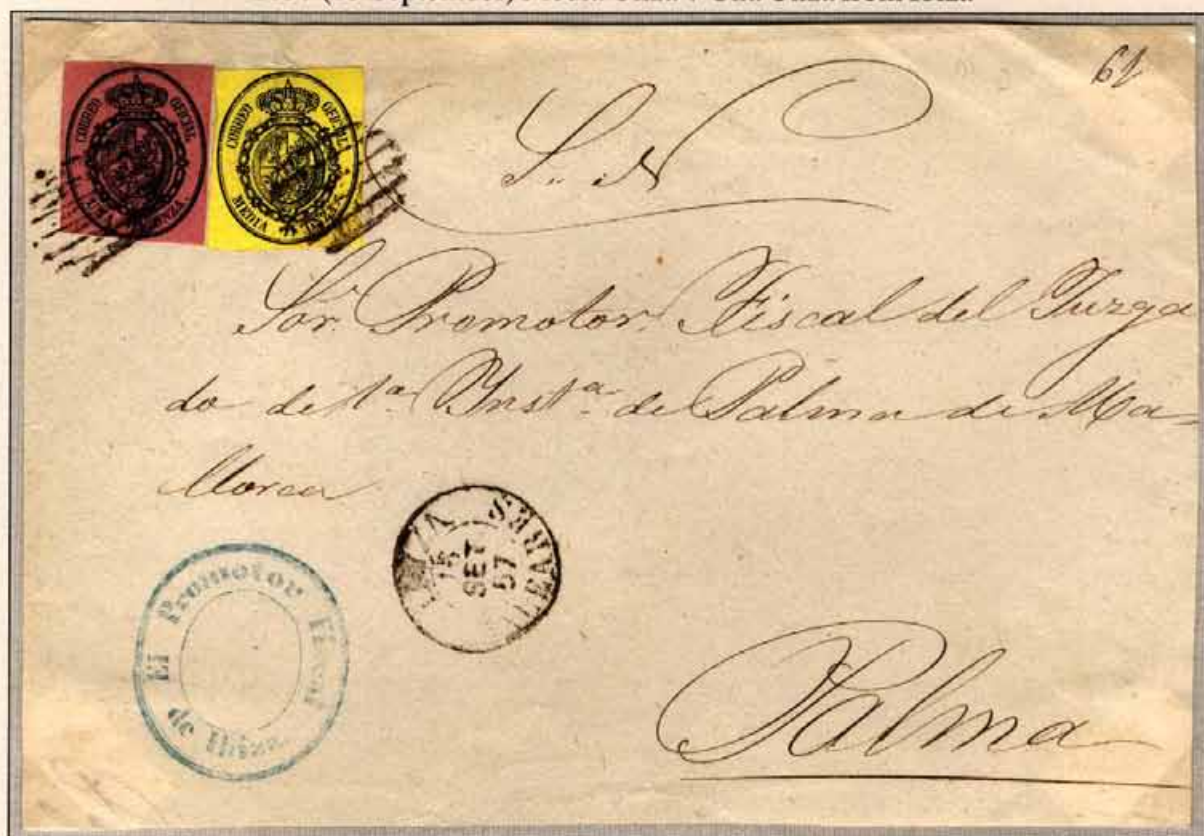 61
CORREO OFICIAL
UNA ONZA.
CORREO OFICIAL
MEDIA ONZA.
S. N
Sor. Promotor Fiscal del Juzga
do de 1a Ynsta. de Palma de Ma-
llorca
15
SET
57
BALEARES
El Promotor Fiscal
de Ibiza
Palma